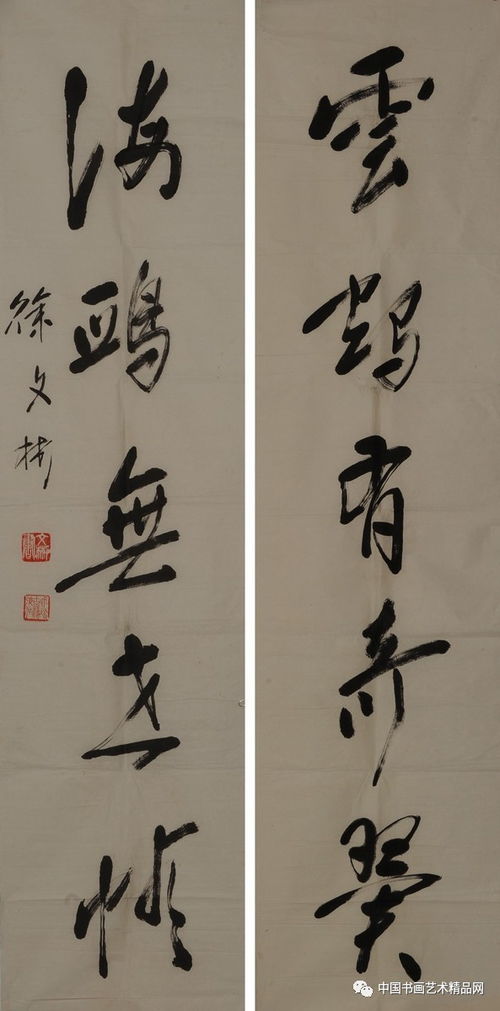 雲鶴有奇翼
海鷗無世情
徐文彬
中国书画艺术精品网